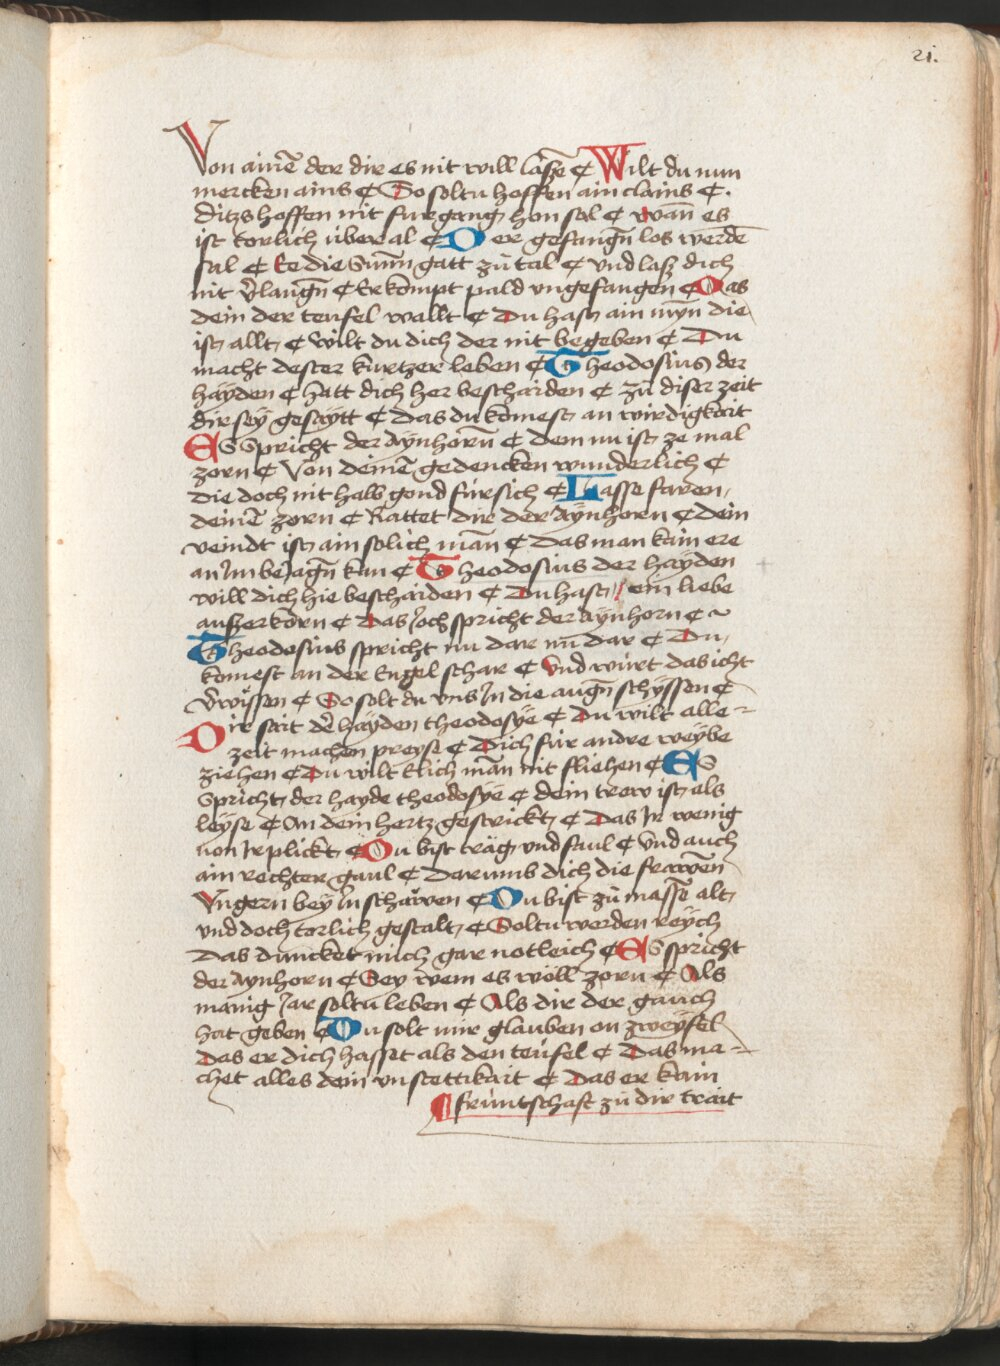 21.
Von ainē der dir es nit will lasße ¢ Wilt du nun
mercken ains ¢ So soltu hoffen ain clains ¢.
Ditzs hoffen nit furgang hon sol ¢ wān es
ist torlich über al ¢ Der gefangn̄ los werdē
sal ¢ Ee die Sunn̄ gatt zů tal ¢ vnd lasz dich
nit v̄langn̄ ¢ Er kompt pald vngefangen ¢ Das
dein der teufel wallt ¢ Du hast ain myn̄ die
ist allt ¢ Wilt du dich der nit begeben ¢ Du
macht dester kurtzer leben ¢ Theodosius der
hayden ¢ hatt dich her beschaiden ¢ zů diser zeit
dir sey gesaytt ¢ Das du komest an wirdigkait
Es Spricht der Aynhorn̄ ¢ dem nu ist ze mal
zorn ¢ Von deinē gedencken wunderlich ¢
die doch nit halb gond fürsich ¢ Lasse faren
deinē zorn ¢ Rattet dir der Aynhorn ¢ dein
veindt ist ain solich mān ¢ Das man kain ere
an Jm beiagn̄ kan ¢ Theodosius der hayden
will dich hie beschaiden ¢ Du hast ein liebe
auszerkorn ¢ Das Joch spricht der Aynhorn ¢
Theodosius spricht nu dar nū dar ¢ Du
komest an der Engel schar ¢ Vnd würt das icht
v̄wissen ¢ So solt du vns Jn die augn̄ schyssen ¢
Dir sait dē hayden theodosye ¢ Du wilt alle=
zeit machen preyse ¢ Dich für andre weybe
ziehen ¢ Du wilt Elich mān nit fliehen ¢ Es
Spricht der hayde theodosye ¢ dein trew ist als
leyse ¢ An dein hertz gestrickt ¢ Das Jr wenig
uon Jr plickt ¢ Du bist träg vnd faul ¢ Vnd auch
ain rechter gaul ¢ Darumb dich die frawēn
Vngern bey Jn schawen ¢ Du bist zů massē alt
vnd doch torlich gestalt ¢ Soltu werden reych
Das duncket mich gar notleich ¢ Es spricht
der Aynhorn ¢ Sey wem es wöll zorn ¢ Als
manig Jar soltu leben ¢ Als dir der gauch
hat geben ¢ Du solt mir glauben on zweyfel
Das er dich hasset als den teufel ¢ Das ma=
chet alles dein vnstettikait ¢ Das er kain
fruntschaft zů dir trait